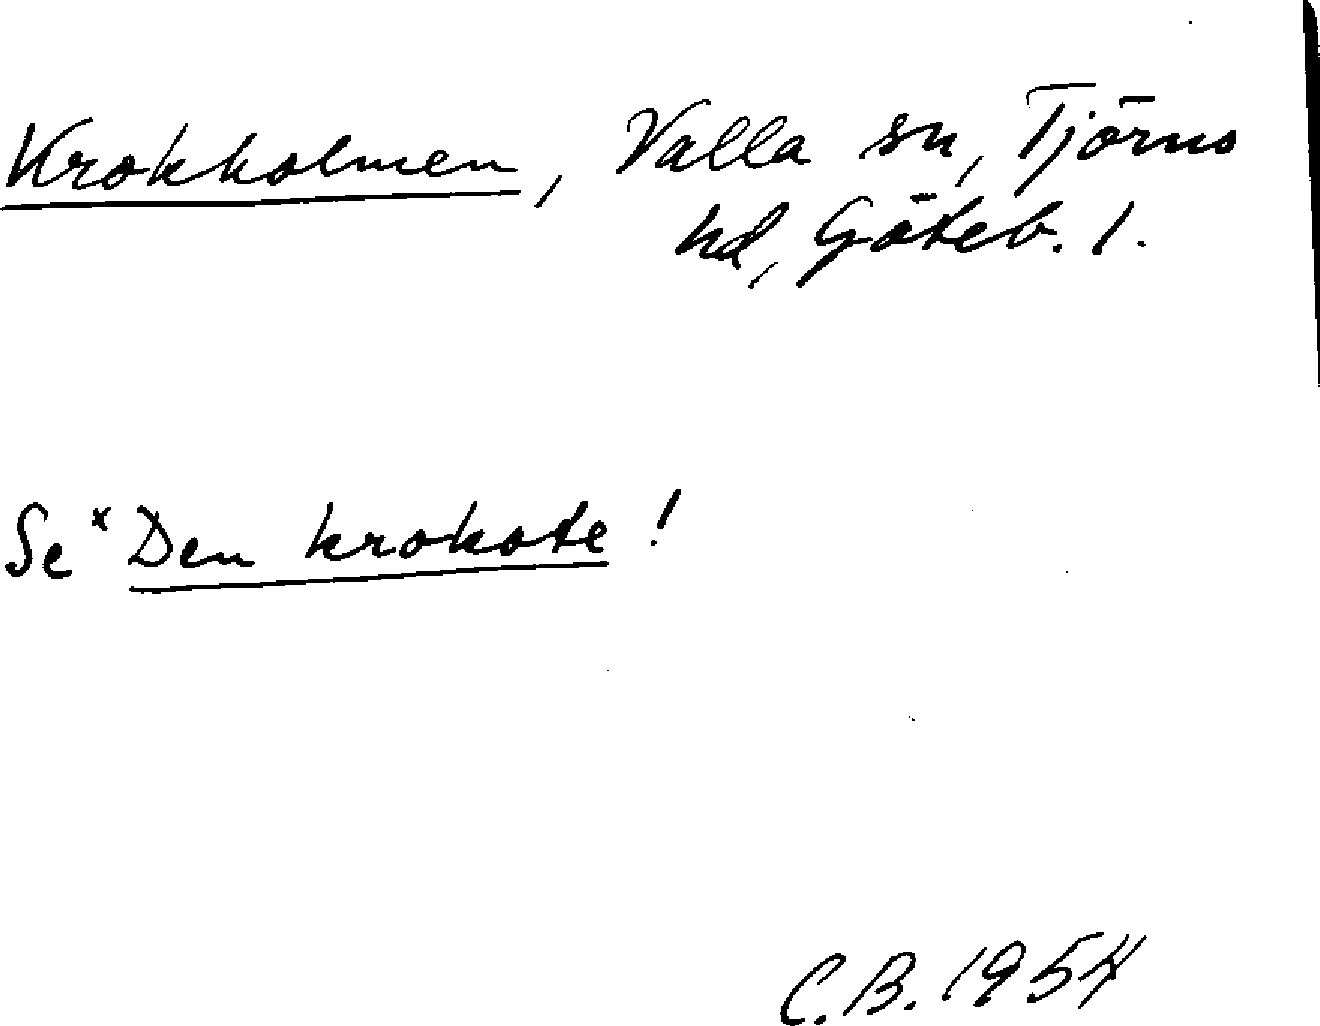 Krokholmen, Valla sn, Tjörns
hd, Göteb. l.
Se ˣDen krokote!
C.B. 1954